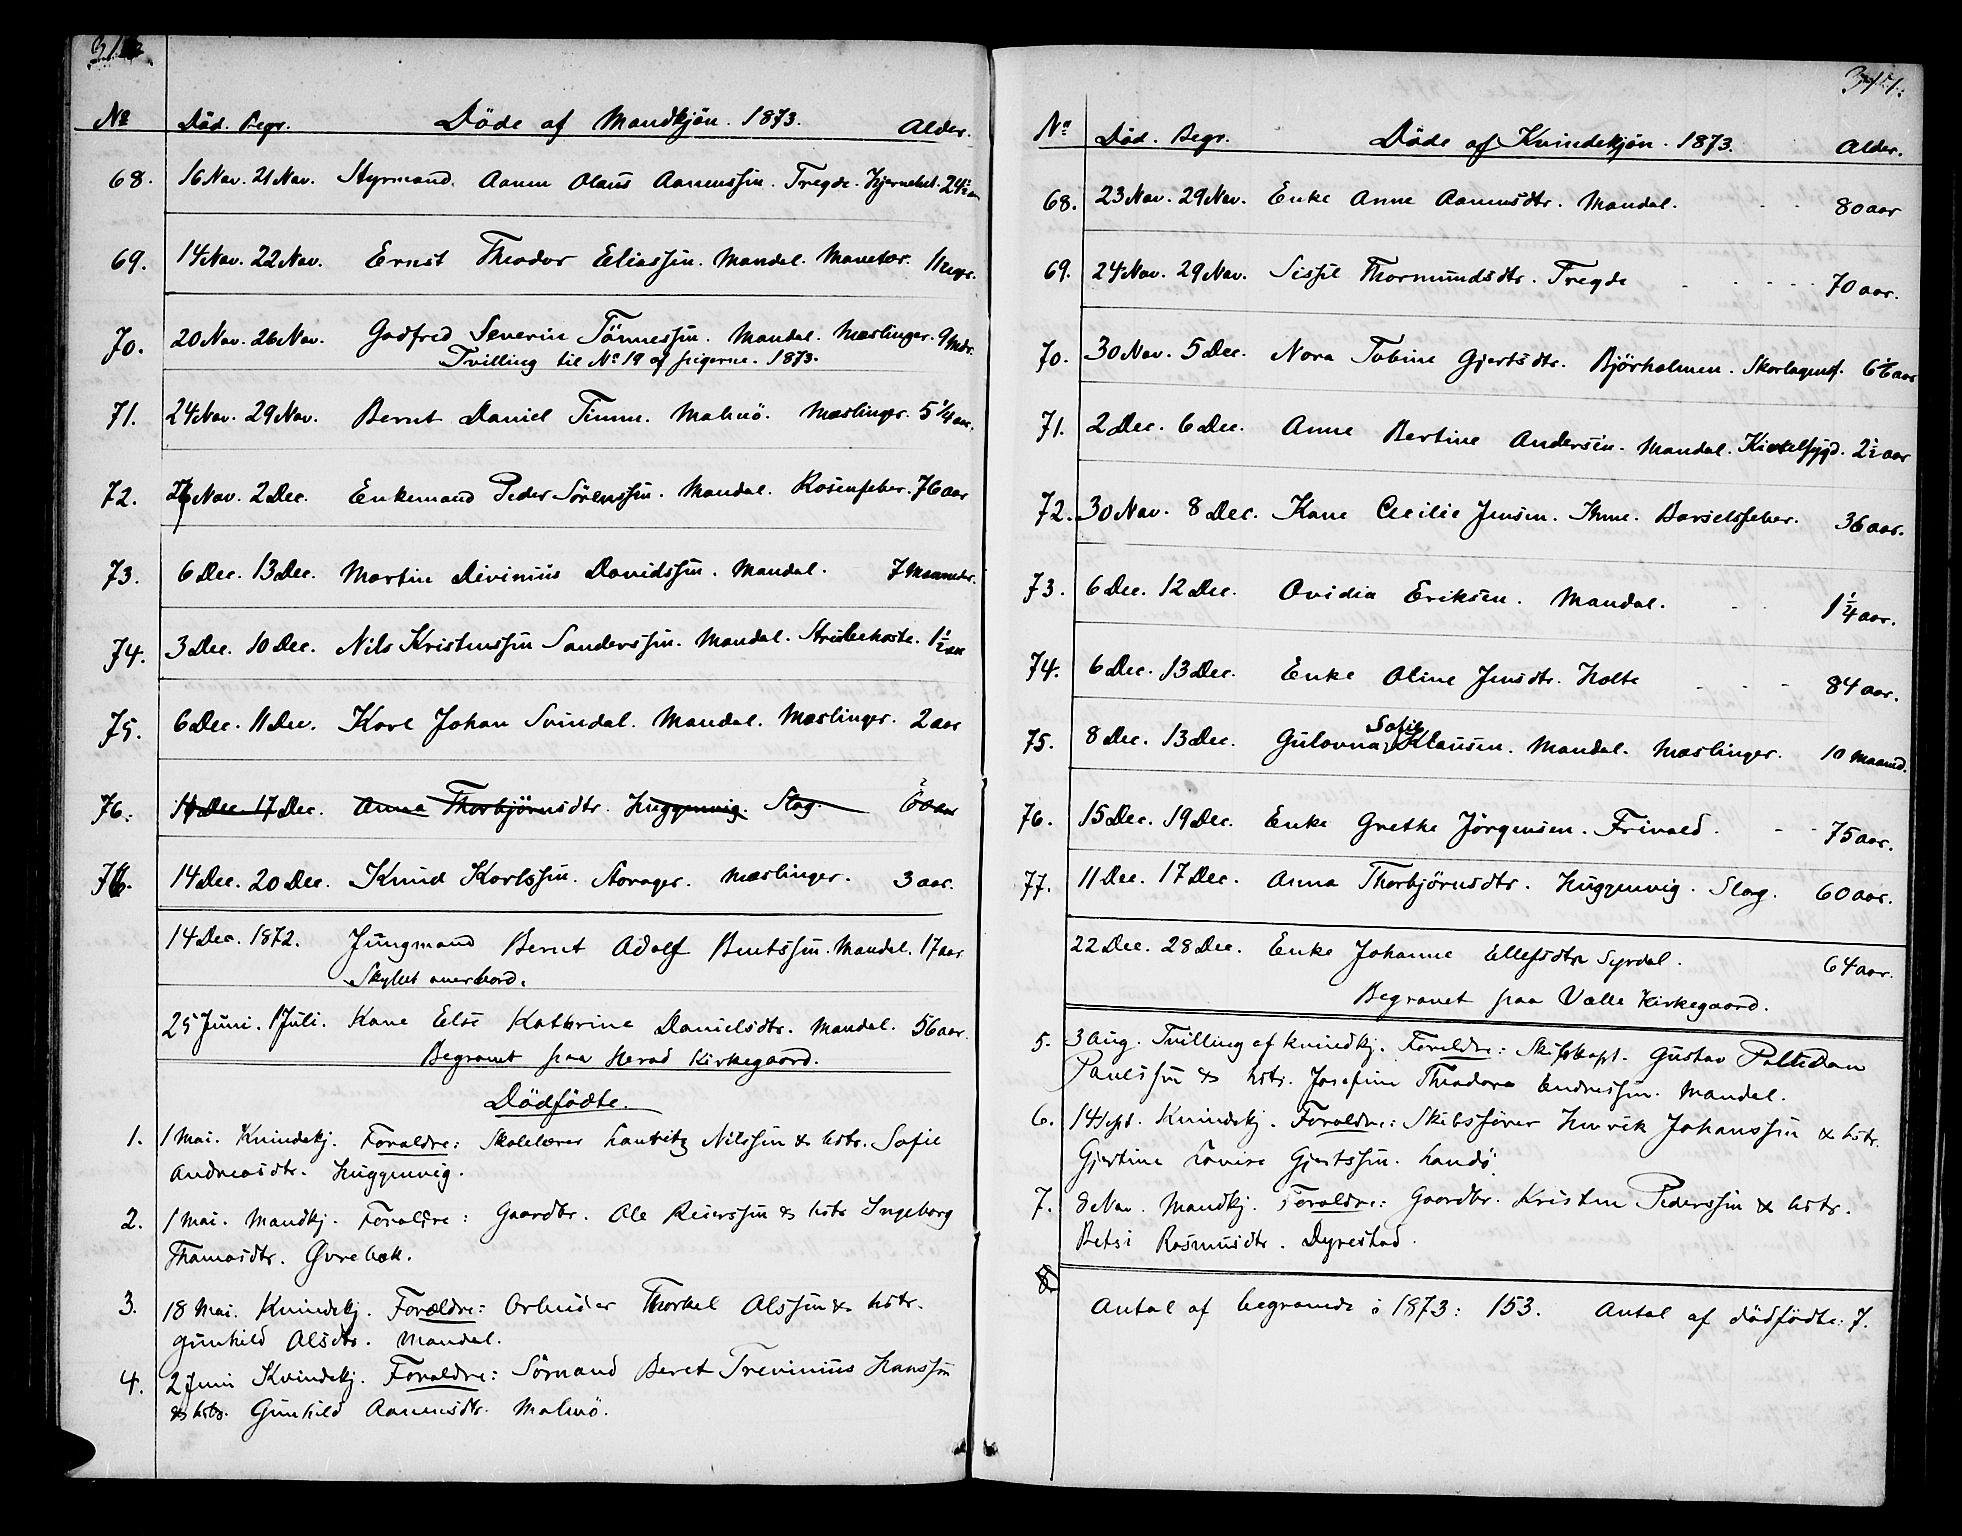 No Död. Begr. Döde af Mandkjön. 1873. Alder.
68. 16 Nov. 21 Nov. Styrmand. Aanen Olaus Aanenssen. Tregde. Hjernebet. 24½ aar
69. 14 Nov. 22 Nov. Ernst Theodor Eliassen. Mandal. Mavekar. 11 uger.
70. 20 Nov. 26 Nov. Godfred Severin Tönnessen. Mandal. Mæslinger. 9 Mdr.
Tvilling til No 19 af pigerne. 1873.
71. 24 Nov. 29 Nov. Bernt Daniel Timm. Malmö. Mæslinger. 5 1/4 aar.
72. 26 Nov. 2 Dec. Enkemand Peder Sörenssen. Mandal. Rosenfeber. 76 aar
73. 6 Dec. 13 Dec. Martin Divinius Davidssen. Mandal. 7 Maaneder.
74. 3 Dec. 10 Dec. Nils Kristenssen Sanderssen. Mandal. Strubehoste. 1½ aar
75. 6 Dec. 11 Dec. Karl Johan Svindal. Mandal. Mæslinger. 2 aar
76. 11 Dec. 17 Dec. Anna Thorbjörnsdtr. Huggenvig. Slag. 60 aar
76. 14 Dec. 20 Dec. Knud Karlssen. Storager. Mæslinger. 3 aar.
14 Dec. 1872. Jungmand Bernt Adolf Bentssen. Mandal. 17 aar
Skyllet overbord.
25 Juni. 1 Juli. Kone Else Kathrine Danielsdtr. Mandal. 56 aar.
Begravet paa Herad Kirkegaard.
Dödfödte.
1. 1 Mai. Kvindekj. Forældre: Skolelærer Lauritz Nilssen & hstr. Sofie
Andreasdtr. Huggenvig.
2. 1 Mai. Mandkj. Forældre: Gaardbr. Ole Reierssen & hstr Ingeborg
Thomasdtr. Øvrebæk.
3. 18 Mai. Kvindekj. Forældre: Arbeider Thorkel Olssen & hstr.
Gunhild Olsdtr. Mandal.
4. 2 Juni Kvindekj. Forældre: Sömand Beret Trevinius Hanssen
& hstr. Gunhild Aanensdtr. Malmö.
No Död. Begr. Döde af Kvindekjön. 1873. Alder.
68. 23 Nov. 29 Nov. Enke Anne Aanensdtr. Mandal. 80 aar
69. 24 Nov. 29 Nov. Sissil Thormundsdtr. Tregde 70 aar.
70. 30 Nov. 5 Dec. Nora Tobine Gjertsdtr. Björholmen. Skarlagensf. 6 1/6 aar
71. 2 Dec. 6 Dec. Anne Bertine Andersen. Mandal. Kirtelsygd. 2½ aar
72. 30 Nov. 8 Dec. Kone Cecilie Jensen. Ihme. Barselsfeber. 36 aar.
73. 6 Dec. 12 Dec. Ovidia Eriksen. Mandal. 1 1/4 aar.
74. 6 Dec. 13 Dec. Enke Oline Jensdtr. Holte 84 aar.
75. 8 Dec. 13 Dec. Gulovna Sofie Klausen. Mandal. Mæslinger. 10 Maaned.
76. 15 Dec. 19 Dec. Enke Grethe Jörgensen. Frivold. 75 aar.
77. 11 Dec. 17 Dec. Anna Thorbjörnsdtr. Huggenvig. Slag. 60 aar.
22 Dec. 28 Dec. Enke Johanne Ellefsdtr Syrdal. 64 aar.
Begravet paa Valle Kirkegaard.
5. 3 Aug. Tvilling af kvindkj. Forældre: Skibskapt. Gustav Palludan
Paulssen & hstr. Josefine Theodora Endressen. Mandal.
6. 14 Sept. Kvindekj. Forældre: Skibsförer Henrik Johanssen & hstr.
Gjertine Lovise Gjertssen. Landö.
7. 8 Nov. Mandkj. Forældre: Gaardbr. Kristen Pederssen & hstr.
Betsi Rasmusdtr. Dyrestad.
Antal af begravede i 1873: 153. Antal af dödfödte: 7.